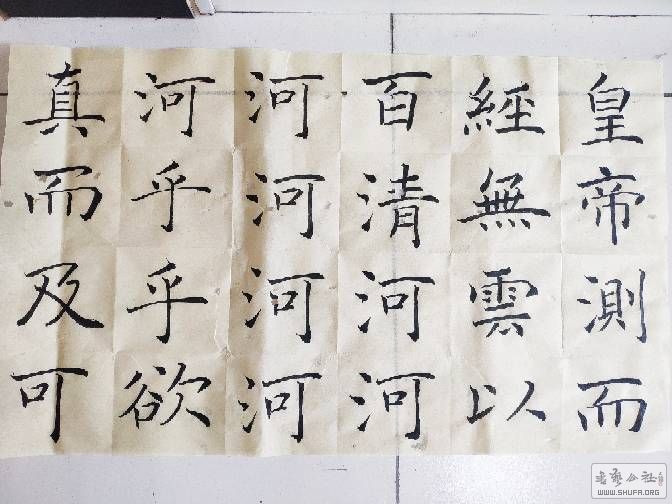 皇帝測而
經無雲以
百清河河
河河河河
河乎乎欲
真而及可
WWW.SHUFA.ORG